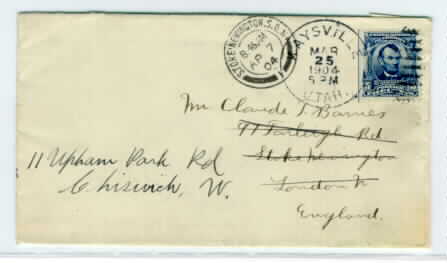 STOKE NEWINGTON. S.O. N.
8.45 AM
AP 7
04
KAYSVILLE
MAR
25
1904
5 PM
UTAH.
Mr Claude T. Barnes
77 Farleigh Rd
Stoke Newington
London N
England.
11 Upham Park Rd
Chiswick, W.